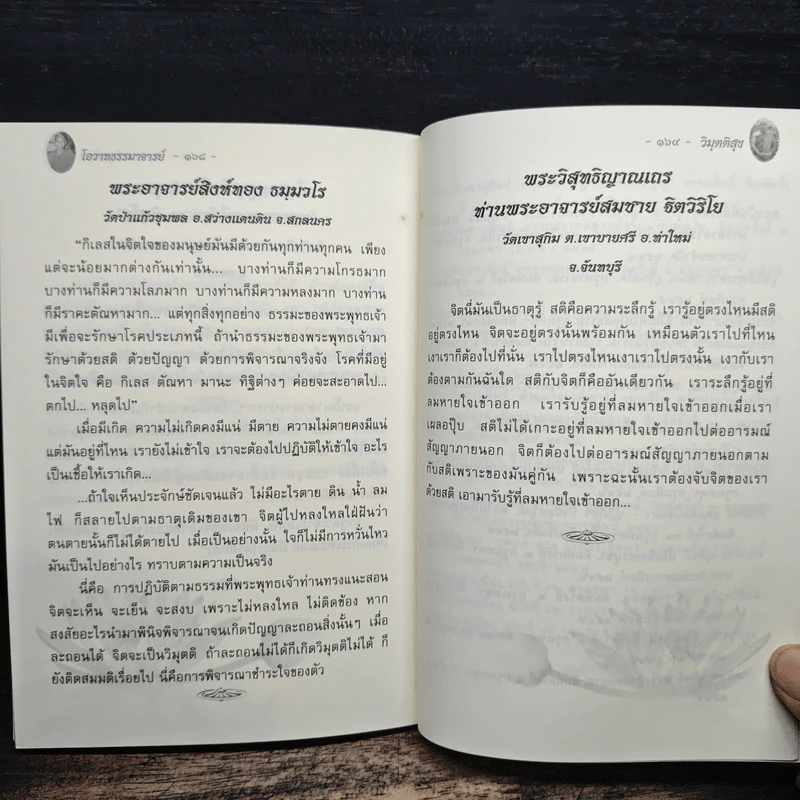 โอวาทธรรมาจารย์ - ๑๖๘ -
พระอาจารย์สิงห์ทอง ธมฺมวโร
วัดป่าแก้วชุมพล อ.สว่างแดนดิน จ.สกลนคร
“กิเลสในจิตใจของมนุษย์มันมีด้วยกันทุกท่านทุกคน เพียง
แต่จะน้อยมากต่างกันเท่านั้น... บางท่านก็มีความโกรธมาก
บางท่านก็มีความโลภมาก บางท่านก็มีความหลงมาก บางท่าน
ก็มีราคะตัณหามาก... แต่ทุกสิ่งทุกอย่าง ธรรมะของพระพุทธเจ้า
มีเพื่อจะรักษาโรคประเภทนี้ ถ้านำธรรมะของพระพุทธเจ้ามา
รักษาด้วยสติ ด้วยปัญญา ด้วยการพิจารณาจริงจัง โรคที่มีอยู่
ในจิตใจ คือ กิเลส ตัณหา มานะ ทิฐิต่างๆ ค่อยจะสะอาดไป...
ตกไป... หลุดไป”
เมื่อมีเกิด ความไม่เกิดคงมีแน่ มีตาย ความไม่ตายคงมีแน่
แต่มันอยู่ที่ไหน เรายังไม่เข้าใจ เราจะต้องไปปฏิบัติให้เข้าใจ อะไร
เป็นเชื้อให้เราเกิด...
...ถ้าใจเห็นประจักษ์ชัดเจนแล้ว ไม่มีอะไรตาย ดิน น้ำ ลม
ไฟ ก็สลายไปตามธาตุเดิมของเขา จิตผู้ไปหลงใหลใฝ่ฝันว่า
ตนตายนั้นก็ไม่ได้ตายไป เมื่อเป็นอย่างนั้น ใจก็ไม่มีการหวั่นไหว
มันเป็นไปอย่างไร ทราบตามความเป็นจริง
นี่คือ การปฏิบัติตามธรรมที่พระพุทธเจ้าท่านทรงแนะสอน
จิตจะเห็น จะเย็น จะสงบ เพราะไม่หลงใหล ไม่ติดข้อง หาก
สงสัยอะไรนำมาพินิจพิจารณาจนเกิดปัญญาละถอนสิ่งนั้นๆ เมื่อ
ละถอนได้ จิตจะเป็นวิมุตติ ถ้าละถอนไม่ได้ก็เกิดวิมุตติไม่ได้ ก็
ยังติดสมมติเรื่อยไป นี่คือการพิจารณาชำระใจของตัว
- ๑๖๙ - วิมุตติสุข
พระวิสุทธิญาณเถร
ท่านพระอาจารย์สมชาย ฐิตวิริโย
วัดเขาสุกิม ต.เขาบายศรี อ.ท่าใหม่
จ.จันทบุรี
จิตนี่มันเป็นธาตุรู้ สติคือความระลึกรู้ เรารู้อยู่ตรงไหนมีสติ
อยู่ตรงไหน จิตจะอยู่ตรงนั้นพร้อมกัน เหมือนตัวเราไปที่ไหน
เงาเราก็ต้องไปที่นั่น เราไปตรงไหนเงาเราไปตรงนั้น เงากับเรา
ต้องตามกันฉันใด สติกับจิตก็คืออันเดียวกัน เราระลึกรู้อยู่ที่
ลมหายใจเข้าออก เรารับรู้อยู่ที่ลมหายใจเข้าออกเมื่อเรา
เผลอปุ๊บ สติไม่ได้เกาะอยู่ที่ลมหายใจเข้าออกไปต่ออารมณ์
สัญญาภายนอก จิตก็ต้องไปต่ออารมณ์สัญญาภายนอกตาม
กับสติเพราะของมันคู่กัน เพราะฉะนั้นเราต้องจับจิตของเรา
ด้วยสติ เอามารับรู้ที่ลมหายใจเข้าออก...